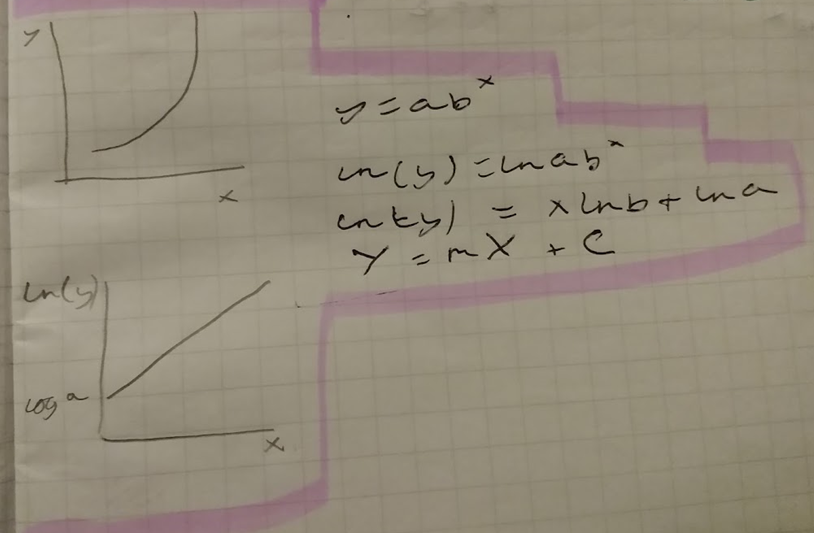 y
x
y = ab^x
ln(y) = lnab^x
ln(y) = xlnb + lna
Y = mX + C
ln(y)
log a
x